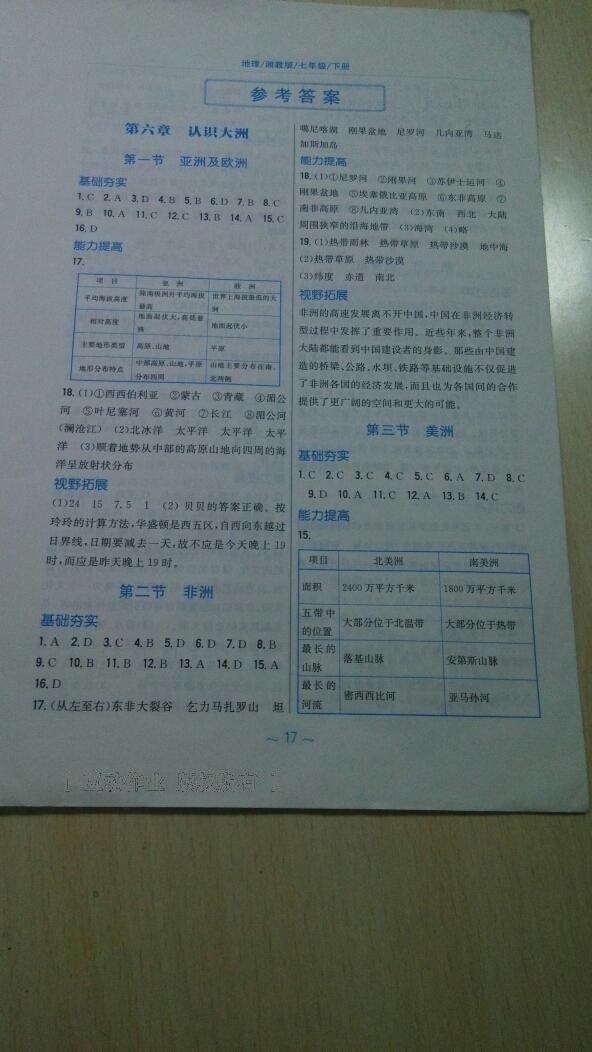 地理/湘教版/七年级/下册
参考答案
第六章 认识大洲
第一节 亚洲及欧洲
基础夯实
1.C 2.A 3.D 4.B 5.B 6.B 7.B 8.C
9.B 10.A 11.C 12.C 13.B 14.A 15.C
16.D
能力提高
17.
项 目 亚 洲 欧 洲
平均海拔高度 除南极洲外平均海拔最高 世界上海拔最低的大洲
相对高度 地面起伏大,高低悬殊 地面起伏小
主要地形类型 高原、山地 平原
地形分布特点 中部高原、山地,平原分布四周 山地主要分布在南、北两侧
18.(1)①西西伯利亚 ②蒙古 ③青藏 ④湄公
河 ⑤叶尼塞河 ⑥黄河 ⑦长江 ⑧湄公河
(澜沧江) (2)北冰洋 太平洋 太平洋 太平
洋 (3)顺着地势从中部的高原山地向四周的海
洋呈放射状分布
视野拓展
(1)24 15 7.5 1 (2)贝贝的答案正确。按
玲玲的计算方法,华盛顿是西五区,自西向东越过
日界线,日期要减去一天,故不应是今天晚上19
时,而应是昨天晚上19时。
第二节 非洲
基础夯实
1.A 2.D 3.C 4.B 5.D 6.D 7.D 8.B
9.C 10.B 11.B 12.B 13.A 14.D 15.A
16.D
17.(从左至右)东非大裂谷 乞力马扎罗山 坦
噶尼喀湖 刚果盆地 尼罗河 几内亚湾 马达
加斯加岛
能力提高
18.(1)①尼罗河 ②刚果河 ③苏伊士运河 ④
刚果盆地 ⑤埃塞俄比亚高原 ⑥东非高原 ⑦
南非高原 ⑧几内亚湾 (2)东南 西北 大陆
周围狭窄的沿海地带 (3)海湾 (4)略
19.(1)热带雨林 热带草原 热带沙漠 地中海
(2)热带草原 热带沙漠
(3)纬度 赤道 南北
视野拓展
非洲的高速发展离不开中国,中国在非洲经济转
型过程中发挥了重要作用。近些年来,整个非洲
大陆都能看到中国建设者的身影。那些由中国建
造的桥梁、公路、水坝、铁路等基础设施不仅促进
了非洲各国的经济发展,而且也为各国间的合作
提供了更广阔的空间和更大的可能。
第三节 美洲
基础夯实
1.C 2.C 3.C 4.C 5.C 6.A 7.D 8.C
9.D 10.A 11.C 12.A 13.B 14.C
能力提高
15.
项目 北美洲 南美洲
面积 2400万平方千米 1800万平方千米
五带中的位置 大部分位于北温带 大部分位于热带
最长的山脉 落基山脉 安第斯山脉
最长的河流 密西西比河 亚马孙河
～17～